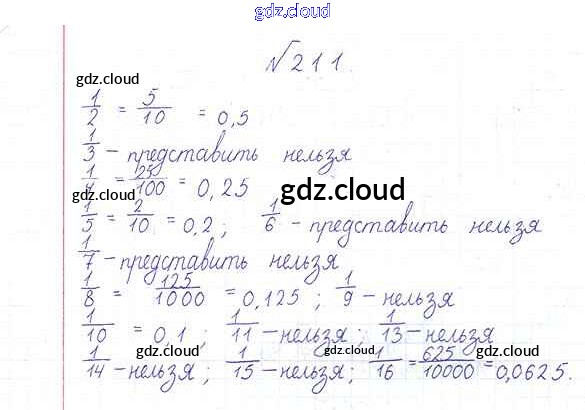 gdz.cloud
№211.
gdz.cloud gdz.cloud
1/2 = 5/10 = 0,5
1/3 - представить нельзя
1/4 = 25/100 = 0,25 gdz.cloud
1/5 = 2/10 = 0,2; 1/6 - представить нельзя
1/7 - представить нельзя
gdz.cloud gdz.cloud
1/8 = 125/1000 = 0,125; 1/9 - нельзя
1/10 = 0,1; 1/11 - нельзя; 1/13 - нельзя
gdz.cloud gdz.cloud
1/14 - нельзя; 1/15 - нельзя; 1/16 = 625/10000 = 0,0625.